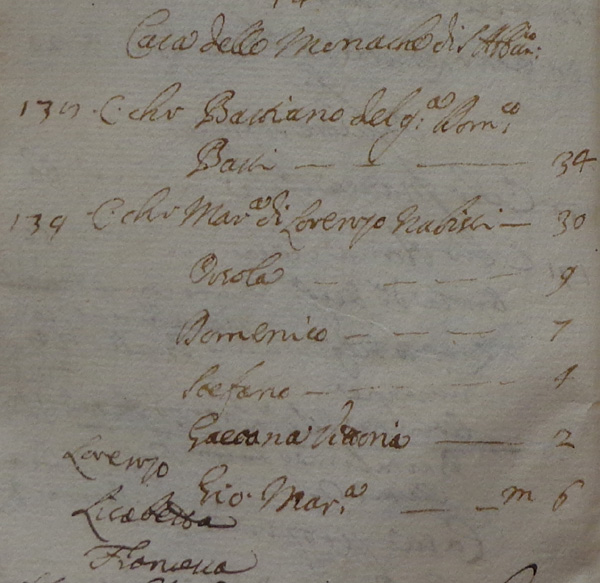 Casa delle Monache di S. Abban:
137. C. chr Bastiano del q. Dom.co
Basti — — — 34
139 C. chr Mar.a di Lorenzo Nabissi — 30
Orsola — — — 9
Domenico — — — 7
Stefano — — — 4
Gaetana Vittoria — 2
Lorenzo
Gio. Mar.a — — m 6
Lisabetta
Francesca